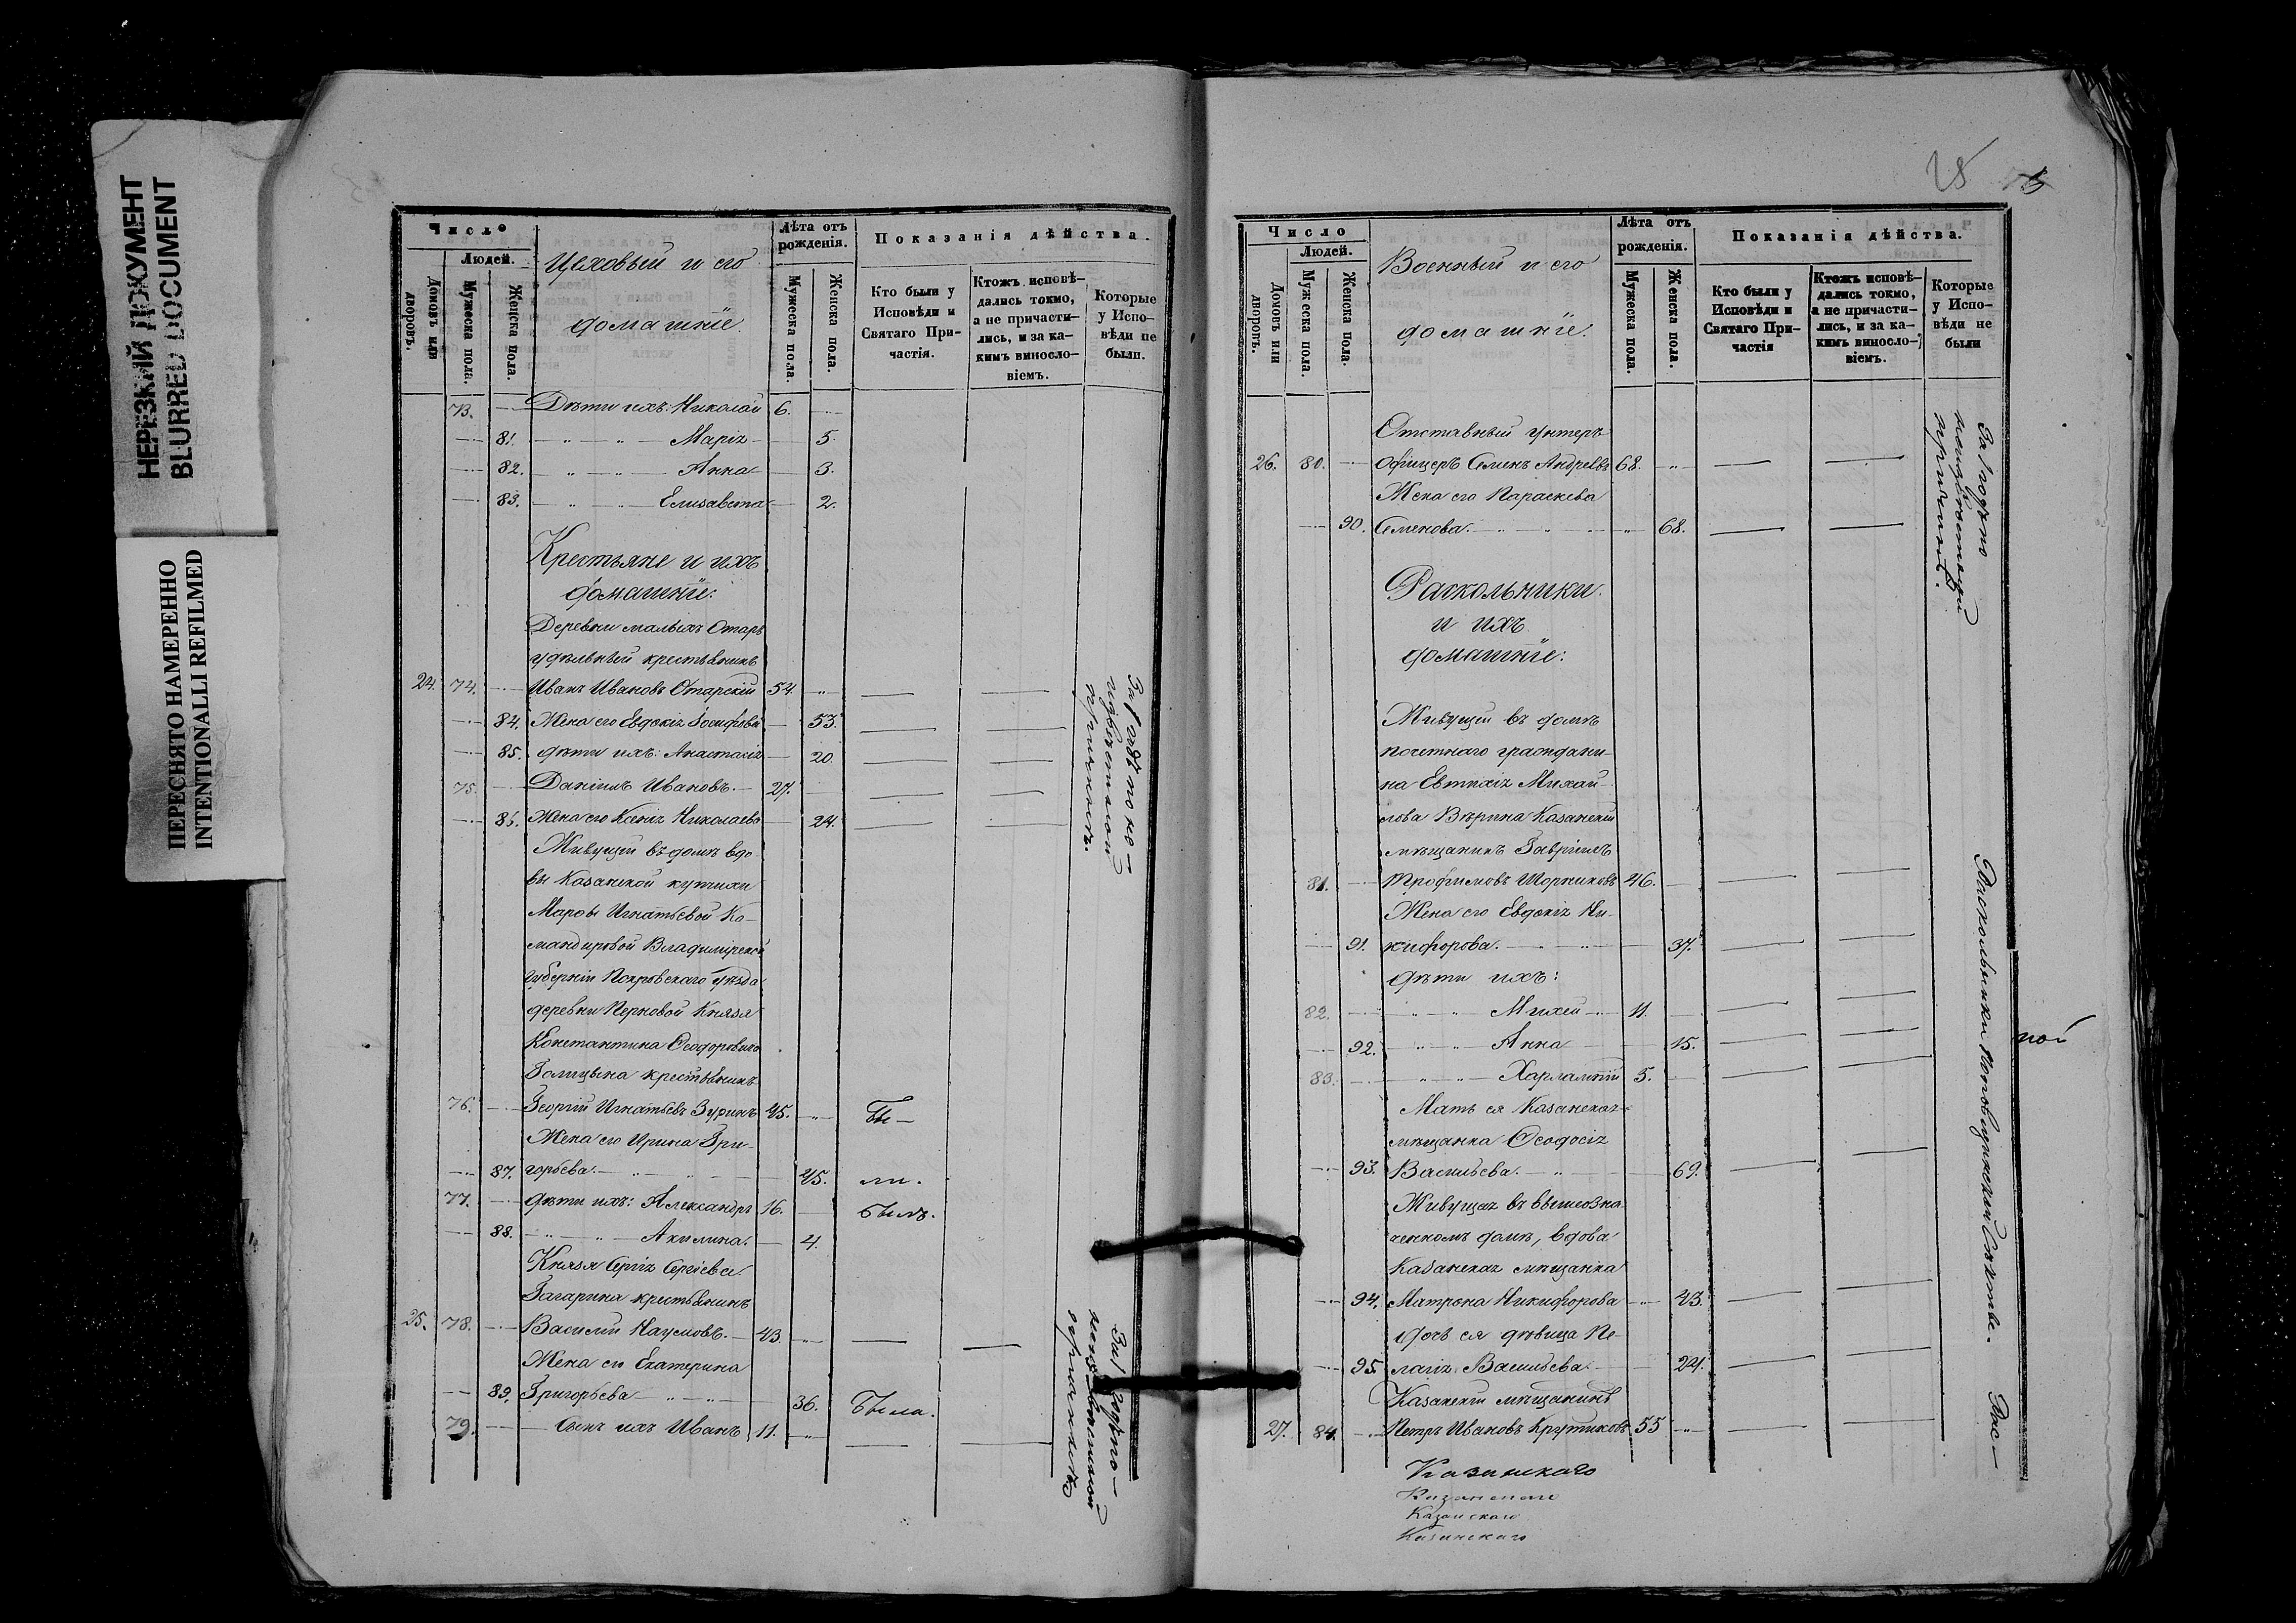 НЕРЕЗКИЙ ДОКУМЕНТ
BLURRED DOCUMENT
ПЕРЕСНЯТО НАМЕРЕННО
INTENTIONALLI REFILMED
Число
Людей.
Домовъ или дворовъ.
Мужеска пола.
Женска пола.
Цеховый и его
домашніе.
Лѣта отъ рожденія.
Мужеска пола.
Женска пола.
Показанія дѣйства.
Кто были у Исповѣди и Святаго При-частія.
Ктожъ исповѣ-дались токмо, а не причасти-лись, и за ка-кимъ винослo-віемъ.
Которые у Испо-вѣди не были.
73. Дѣти ихъ: Николай 6.
81. " " Марія 5.
82. " " Анна 3.
83. " " Елисавета 2.
Крестьяне и ихъ
домашніе:
Деревни малыхъ Отаръ
удѣльный крестьянинъ
24. 74. Иванъ Ивановъ Отарскій 54. "
84. Жена его Евдокія Іосифова 53.
85. дѣти ихъ: Анастасія 20.
75. Даніилъ Ивановъ. 27.
86. Жена его Ксенія Николаева 24.
За 1 годъ по не-
извѣстной
причинѣ.
Живущій въ домѣ вдо-
вы Казанской купчихи
Марѳы Игнатьевой Ко-
мандировой Владимірской
Губерніи Покровскаго уѣзда
деревни Перновой Князя
Константина Ѳеодоровича
Голицына крестьянинъ
76. Георгій Игнатьевъ Зуринъ 45. " Бы-
Жена его Ирина Гри-
87. горьева. " " 45. ли.
77. дѣти ихъ: Александръ 16. былъ.
88. " " Акилина. 4.
Князя Сергія Сергіева
Гагарина крестьянинъ
25. 78. Василій Наумовъ. 43. "
Жена его Екатерина
89. Григорьева " " 36. Была.
79. Сынъ ихъ Иванъ 11. "
За 1 годъ по
неизвѣстной
причинѣ
25
Число
Людей.
Домовъ или дворовъ.
Мужеска пола.
Женска пола.
Военный и его
домашніе.
Лѣта отъ рожденія.
Мужеска пола.
Женска пола.
Показанія дѣйства.
Кто были у Исповѣди и Святаго При-частія
Ктожъ исповѣ-дались токмо, а не причасти-лись, и за ка-кимъ винослo-віемъ.
Которые у Испо-вѣди не были
Отставный унтеръ
26. 80. офицеръ Семенъ Андреевъ 68. "
Жена его Параскева
90. Семенова. " " " 68.
За 1 годъ по
неизвѣстной
причинѣ.
Раскольники
и ихъ
домашніе:
Живущій въ домѣ
почетнаго граждани-
на Евтихія Михай-
лова Вѣрина Казанскій
мѣщанинъ Гавріилъ
81. Трофимовъ Шорниковъ 46.
Жена его Евдокія Ни-
91. кифорова. " " 37.
дѣти ихъ:
82. " " Михей 11.
92. " " Анна 15.
83. " " Харлампій 5.
Мать ея Казанская
мѣщанка Ѳеодосія
93. Васильева. " 69.
Живущая въ вышеозна-
ченномъ домѣ, вдова
Казанская мѣщанка
94. Матрона Никифорова " 43.
дочь ея дѣвица Пе-
95. лагія Васильева 24.
Казанскій мѣщанинъ
27. 84. Петръ Ивановъ Крутиковъ 55 "
Раскольники
Рас-
пой
Казанскаго
Казанскаго
Казанскаго
Казанскаго